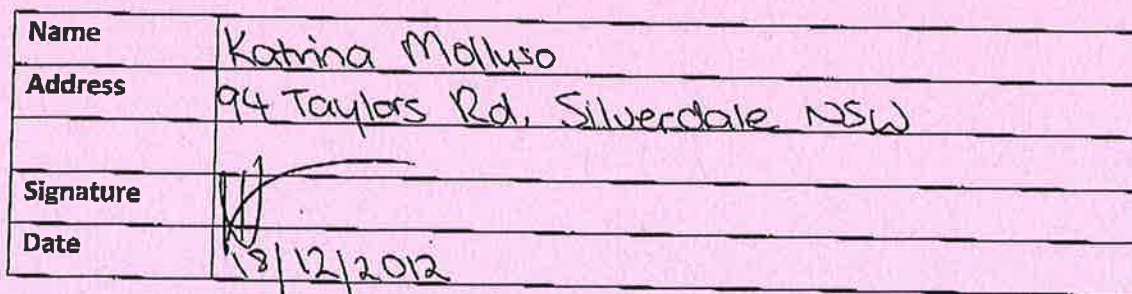 Name Katrina Molluso
Address 94 Taylors Rd, Silverdale NSW
Signature
Date 18/12/2012